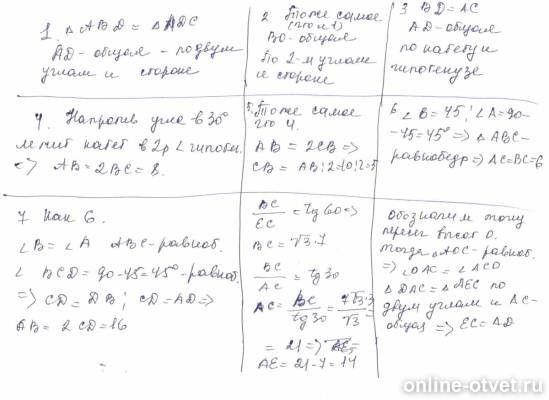 1. △ABD = △ADC
AD-общая - по двум
углам и стороне
2 То же самое
(что и 1)
BO-общая
По 2-м углам
и стороне
3 BD = AC
AD-общая
по катету и
гипотенузе
4. Напротив угла в 30°
лежит катет в 2р < гипотен.
=> AB = 2BC = 8.
5. То же самое
что 4.
AB = 2CB =>
CB = AB:2=10:2=5
6 ∠B = 45°; ∠A=90-
-45=45° => △ABC-
равнобедр => AC=BC=6
7 Как 6.
∠B = ∠A ABC-равноб.
∠BCD = 90-45=45°-равноб.
=> CD = DB; CD=AD=>
AB = 2 CD = 16
BC/EC = tg 60 =>
BC = √3·7
BC/AC = tg 30
AC = BC/tg 30 = 7√3·3/√3 =
= 21 =>
AE = 21-7 = 14
Обозначим точку
перес высот O.
тогда △AOC-равноб.
=> ∠OAC = ∠ACO
△DAC = △AEC по
двум углам и AC-
общая => EC = AD
online-otvet.ru